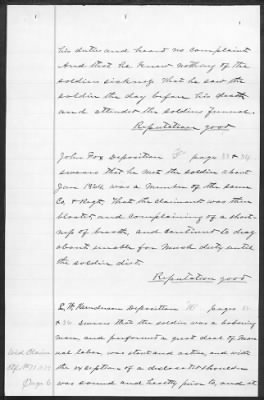 his duties and heard no complaint
And that he knew nothing of the
soldiers sickness that he saw the
soldier the day before his death
and attended the soldiers funeral.
Reputation good
John Fox Deposition "F" pages 33 & 34
swears that he met the soldier about
Jan 1864 was a member of the same
Co. & Regt. That the claimant was then
bloated and complaining of a short-
ness of breath, and continued to drag
about unable for much duty until
the soldier disct.
Reputation good
Henderson Deposition "H" pages
& swears that the soldier was a laboring
man, and performed a great deal of man-
ual labor, was stout and active, and with
the exception of a dislocated shoulder
was sound and healthy prior to, and at
Wid. Claim
Page 6